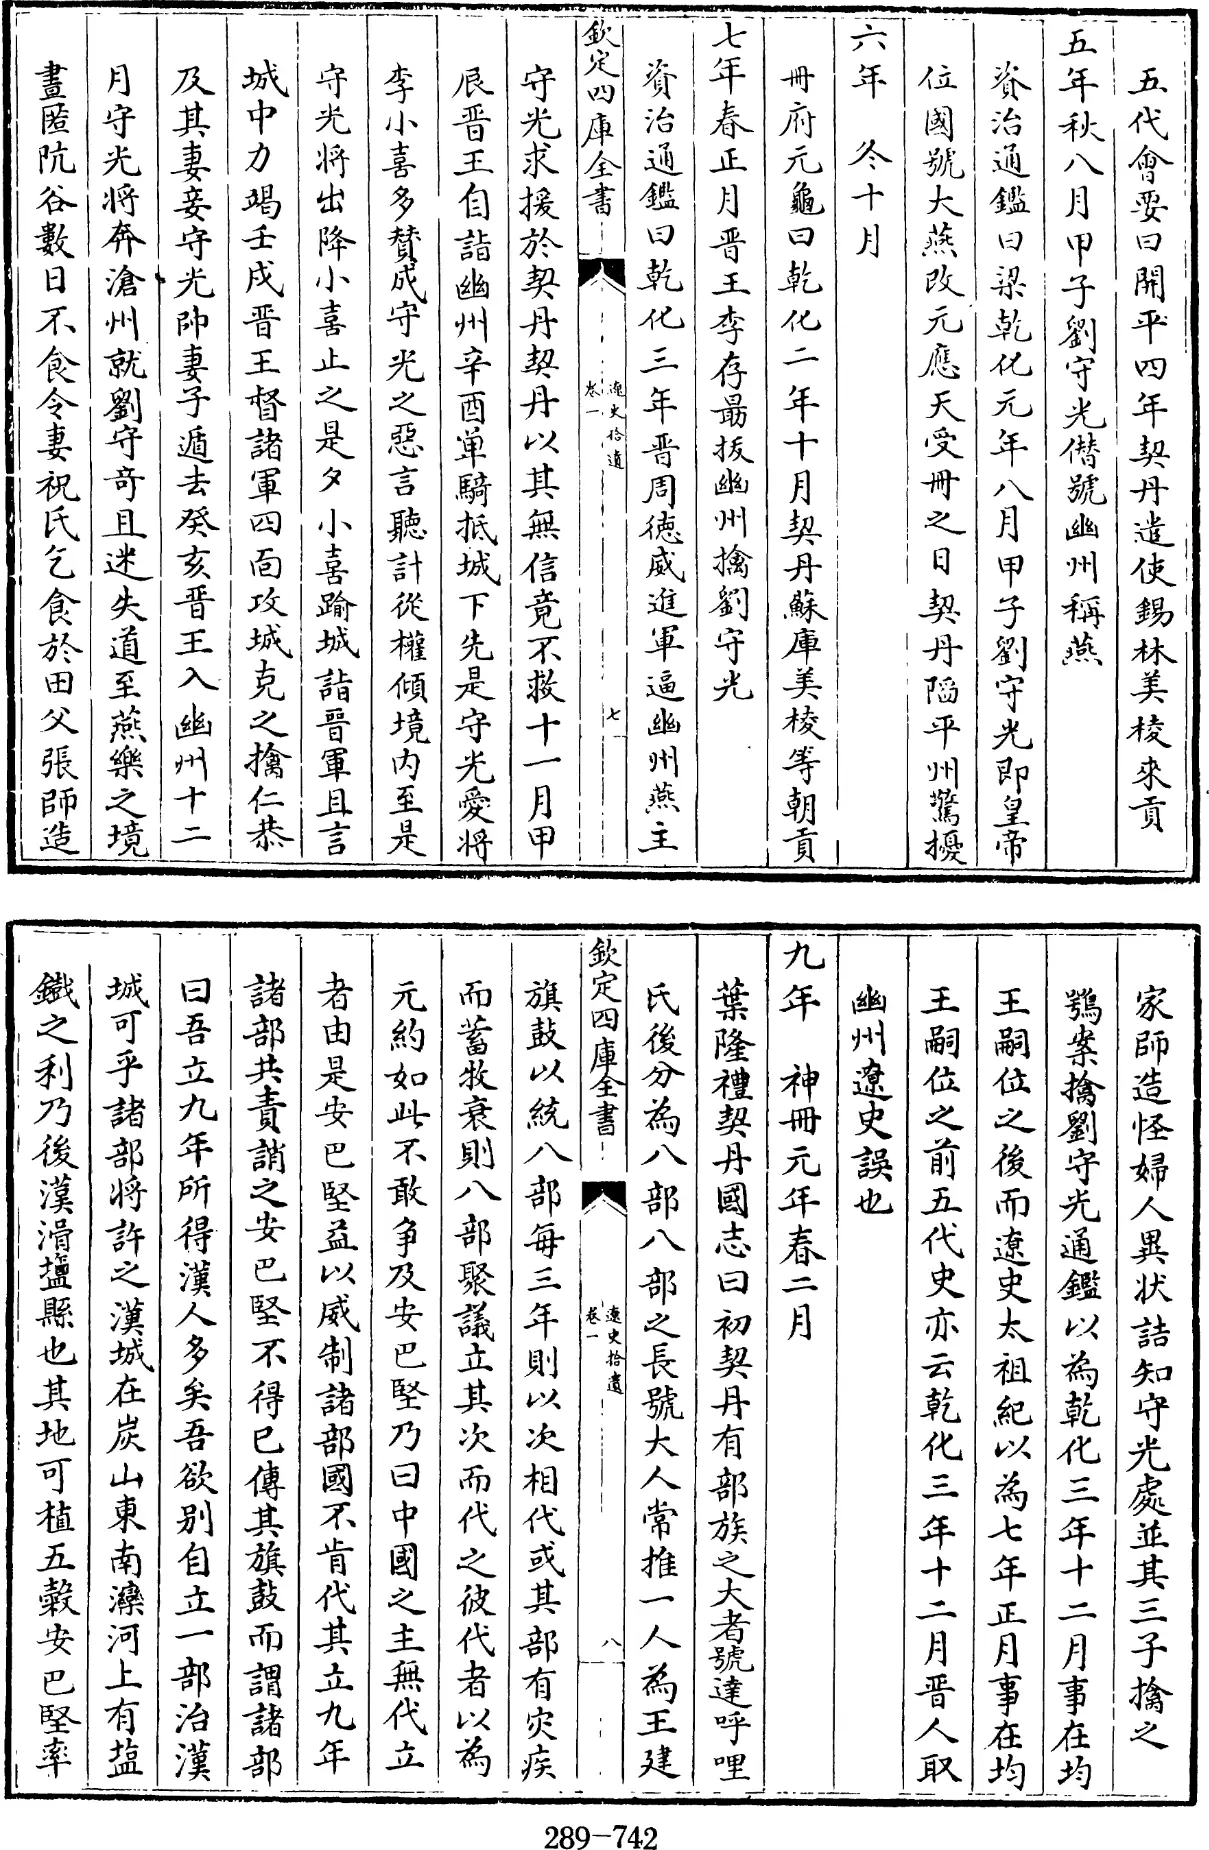 五代會要曰開平四年契丹遣使錫林美稜來貢
五年秋八月甲子劉守光僭號幽州稱燕
資治通鑑曰梁乾化元年八月甲子劉守光即皇帝
位國號大燕改元應天受冊之日契丹陷平州驚擾
六年　冬十月
冊府元龜曰乾化二年十月契丹蘇庫美稜等朝貢
七年春正月晉王李存勗拔幽州擒劉守光
資治通鑑曰乾化三年晉周德威進軍逼幽州燕主
欽定四庫全書
遼史拾遺
卷一
七
守光求援於契丹契丹以其無信竟不救十一月甲
辰晉王自詣幽州辛酉單騎抵城下先是守光愛將
李小喜多贊成守光之惡言聽計從權傾境內至是
守光將出降小喜止之是夕小喜踰城詣晉軍且言
城中力竭壬戌晉王督諸軍四面攻城克之擒仁恭
及其妻妾守光帥妻子遁去癸亥晉王入幽州十二
月守光將奔滄州就劉守奇且迷失道至燕樂之境
晝匿阬谷數日不食令妻祝氏乞食於田父張師造
家師造怪婦人異狀詰知守光處並其三子擒之
鶚案擒劉守光通鑑以為乾化三年十二月事在均
王嗣位之後而遼史太祖紀以為七年正月事在均
王嗣位之前五代史亦云乾化三年十二月晉人取
幽州遼史誤也
九年　神冊元年春二月
葉隆禮契丹國志曰初契丹有部族之大者號達呼哩
氏後分為八部八部之長號大人常推一人為王建
欽定四庫全書
遼史拾遺
卷一
八
旗鼓以統八部每三年則以次相代或其部有灾疾
而蓄牧衰則八部聚議立其次而代之彼代者以為
元約如此不敢爭及安巴堅乃曰中國之主無代立
者由是安巴堅益以威制諸部國不肯代其立九年
諸部共責誚之安巴堅不得已傳其旗鼓而謂諸部
曰吾立九年所得漢人多矣吾欲別自立一部治漢
城可乎諸部將許之漢城在炭山東南灤河上有塩
鐵之利乃後漢滑鹽縣也其地可植五穀安巴堅率
289-742